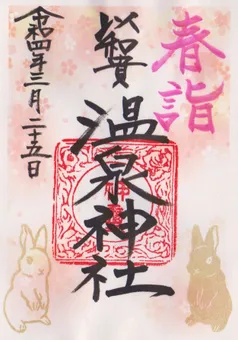 春詣
奉賀
温泉神社
令和四年三月二十五日